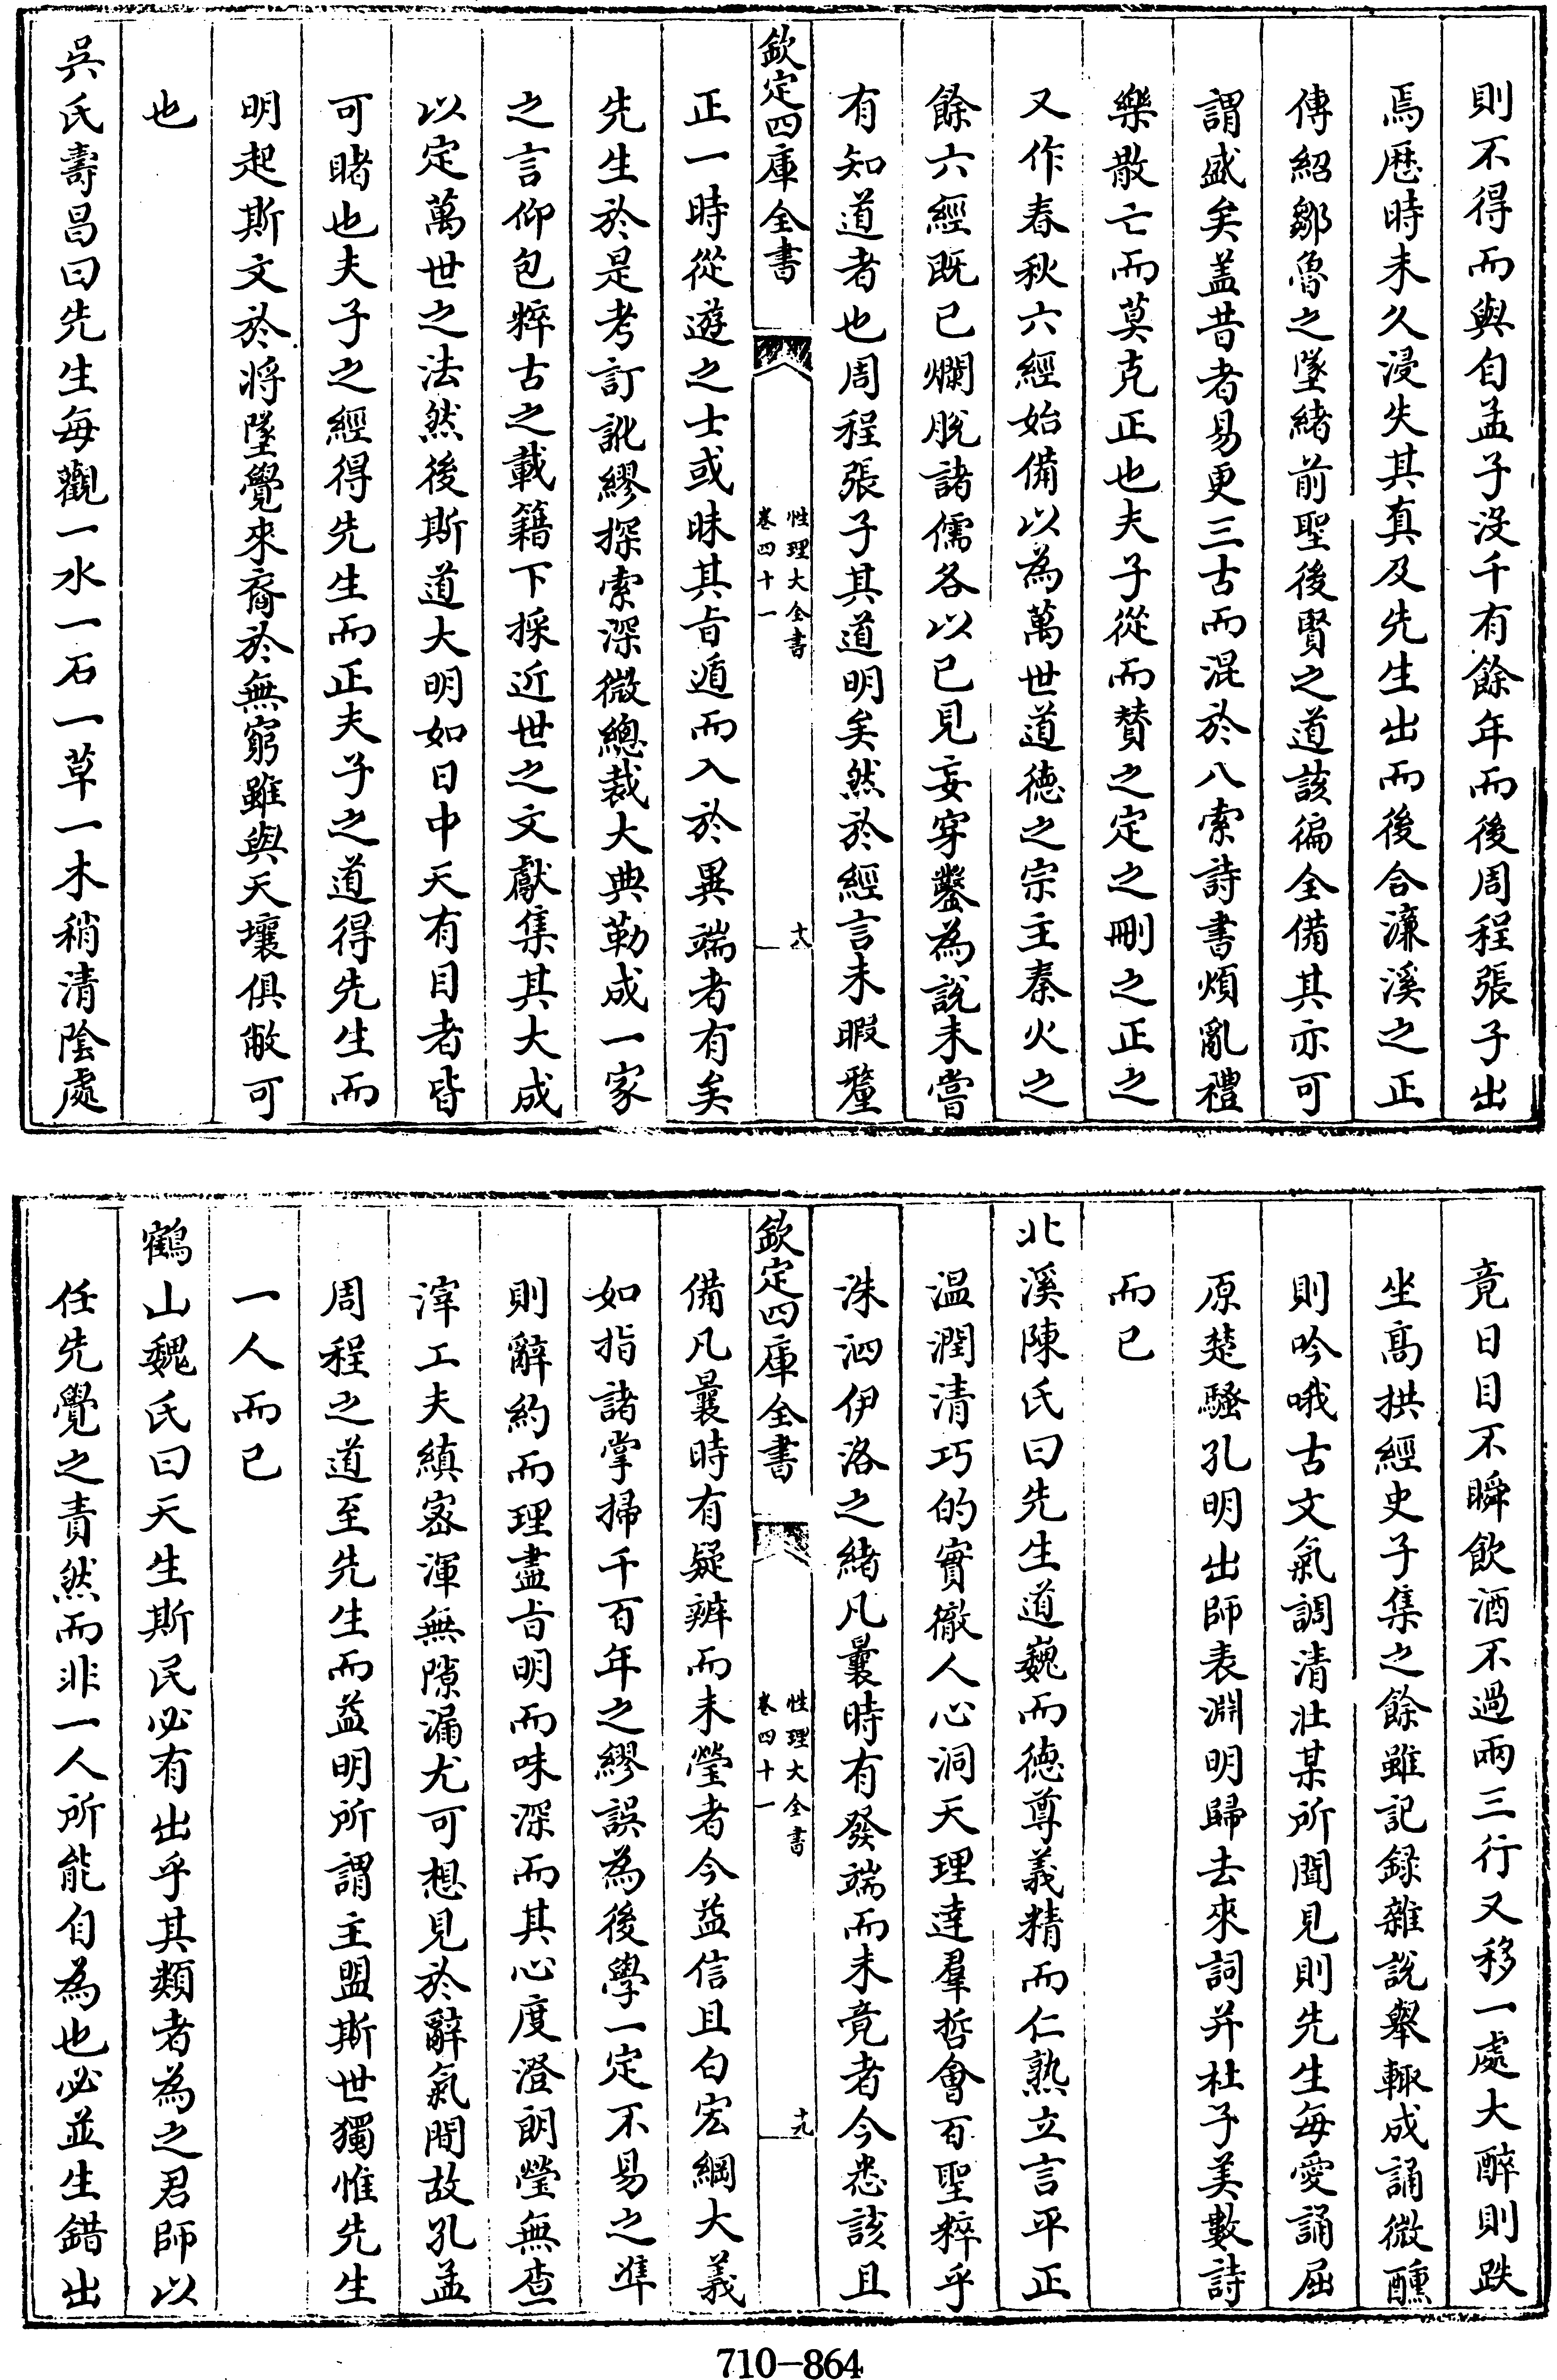 則不得而與自孟子沒千有餘年而後周程張子出
焉厯時未久浸失其真及先生出而後合濂溪之正
傳紹鄒魯之墜緒前聖後賢之道該徧全備其亦可
謂盛矣盖昔者易更三古而混於八索詩書煩亂禮
樂散亡而莫克正也夫子從而賛之定之刪之正之
又作春秋六經始備以為萬世道徳之宗主秦火之
餘六經既已爛脫諸儒各以已見妄穿鑿為說未嘗
有知道者也周程張子其道明矣然於經言未暇釐
欽定四庫全書
性理大全書
卷四十一
十八
正一時從遊之士或昧其㫖遁而入於異端者有矣
先生於是考訂訛繆探索深微總裁大典勒成一家
之言仰包粹古之載籍下採近世之文獻集其大成
以定萬世之法然後斯道大明如日中天有目者皆
可睹也夫子之經得先生而正夫子之道得先生而
明起斯文於将墜覺來裔於無窮雖與天壤俱敝可
也
吳氏壽昌曰先生每觀一水一石一草一木稍清陰處
竟日目不瞬飲酒不過兩三行又移一處大醉則趺
坐髙拱經史子集之餘雖記録雜說舉輒成誦微醺
則吟哦古文氣調清壯某所聞見則先生每愛誦屈
原楚騷孔明出師表淵明歸去來詞并杜子美數詩
而已
北溪陳氏曰先生道巍而徳尊義精而仁熟立言平正
温潤清巧的實徹人心洞天理達羣哲㑹百聖粹乎
洙泗伊洛之緒凡曩時有發端而未竟者今悉該且
欽定四庫全書
性理大全書
卷四十一
十九
備凡曩時有疑辨而未瑩者今益信且白宏綱大義
如指諸掌掃千百年之繆誤為後學一定不易之準
則辭約而理盡㫖明而味深而其心度澄朗瑩無查
滓工夫縝宻渾無隙漏尤可想見於辭氣間故孔孟
周程之道至先生而益明所謂主盟斯世獨惟先生
一人而已
鶴山魏氏曰天生斯民必有出乎其類者為之君師以
任先覺之責然而非一人所能自為也必並生錯出
710-864